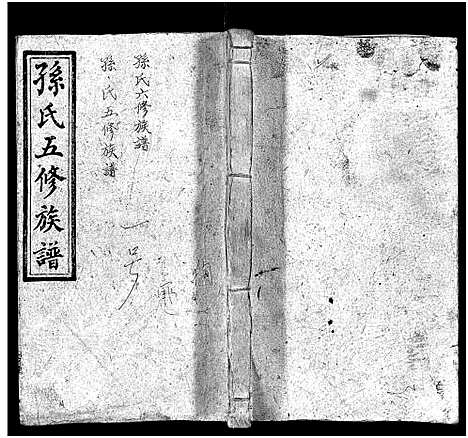 孫氏五修族譜
孫氏六修族譜
孫氏五修族譜
一号